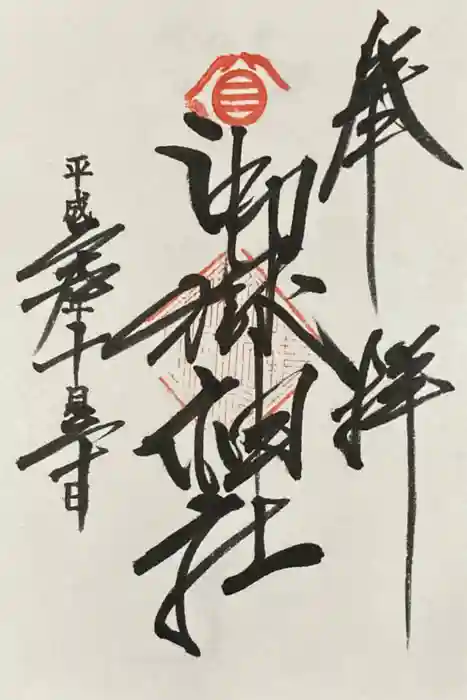 奉拝
御嶽神社
平成 年十月 十日